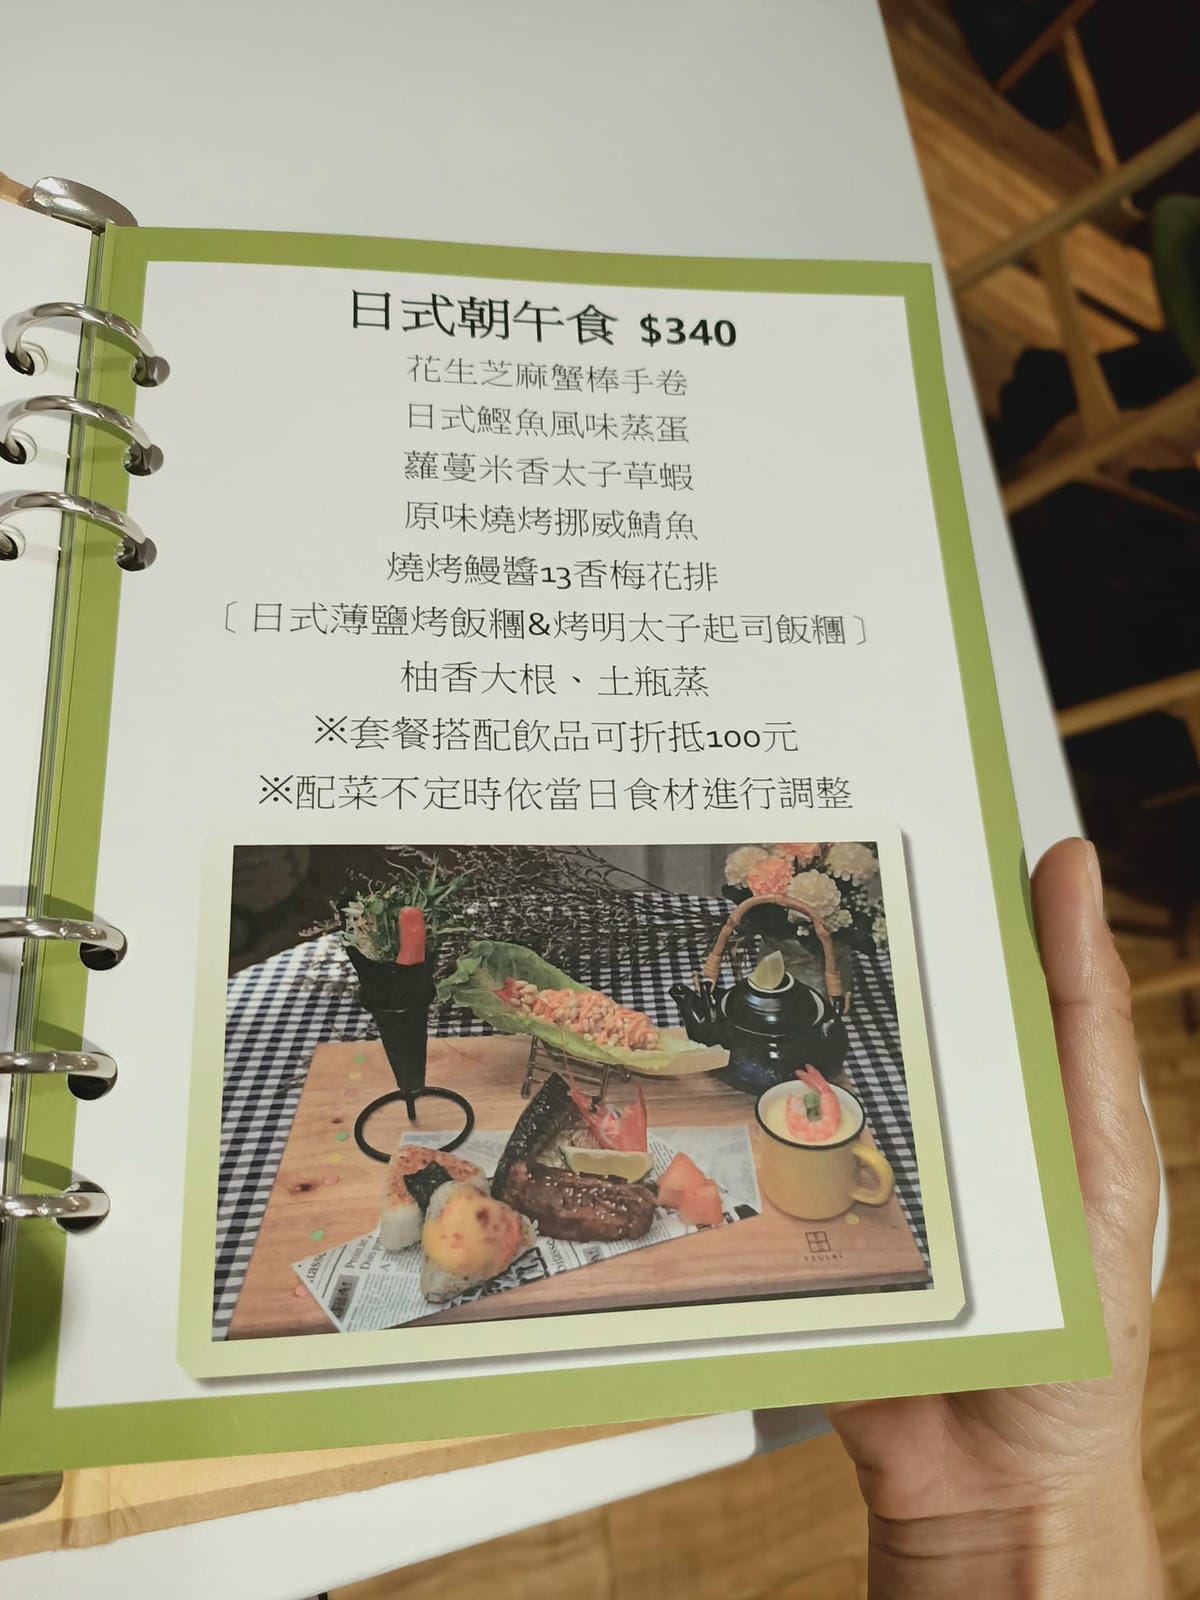 日式朝午食 $340
花生芝麻蟹棒手卷
日式鰹魚風味蒸蛋
蘿蔓米香太子草蝦
原味燒烤挪威鯖魚
燒烤鰻醬13香梅花排
〔日式薄鹽烤飯糰&烤明太子起司飯糰〕
柚香大根、土瓶蒸
※套餐搭配飲品可折抵100元
※配菜不定時依當日食材進行調整
TSULAI